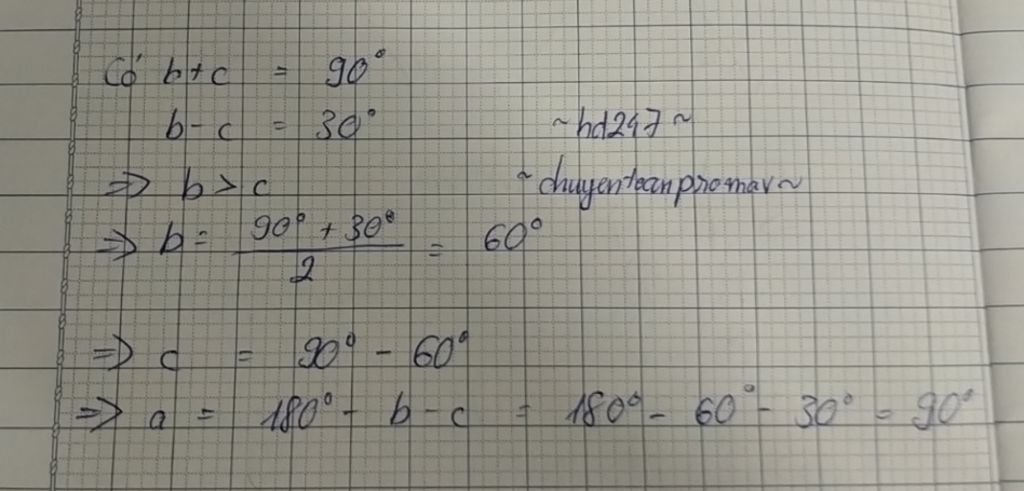 Có b+c = 90°
b-c = 30° ~hd247~
=> b > c ~chuyentoanpromax~
=> b = (90° + 30°)/2 = 60°
=> c = 90° - 60°
=> a = 180° - b - c = 180° - 60° - 30° = 90°